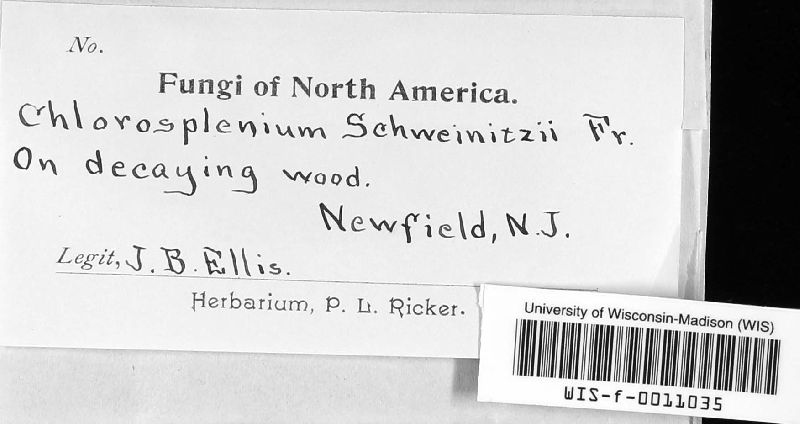 No.
Fungi of North America.
Chlorosplenium Schweinitzii Fr.
On decaying wood.
Newfield, N.J.
Legit, J. B. Ellis.
Herbarium, P. L. Ricker.
University of Wisconsin-Madison (WIS)
WIS-f-0011035